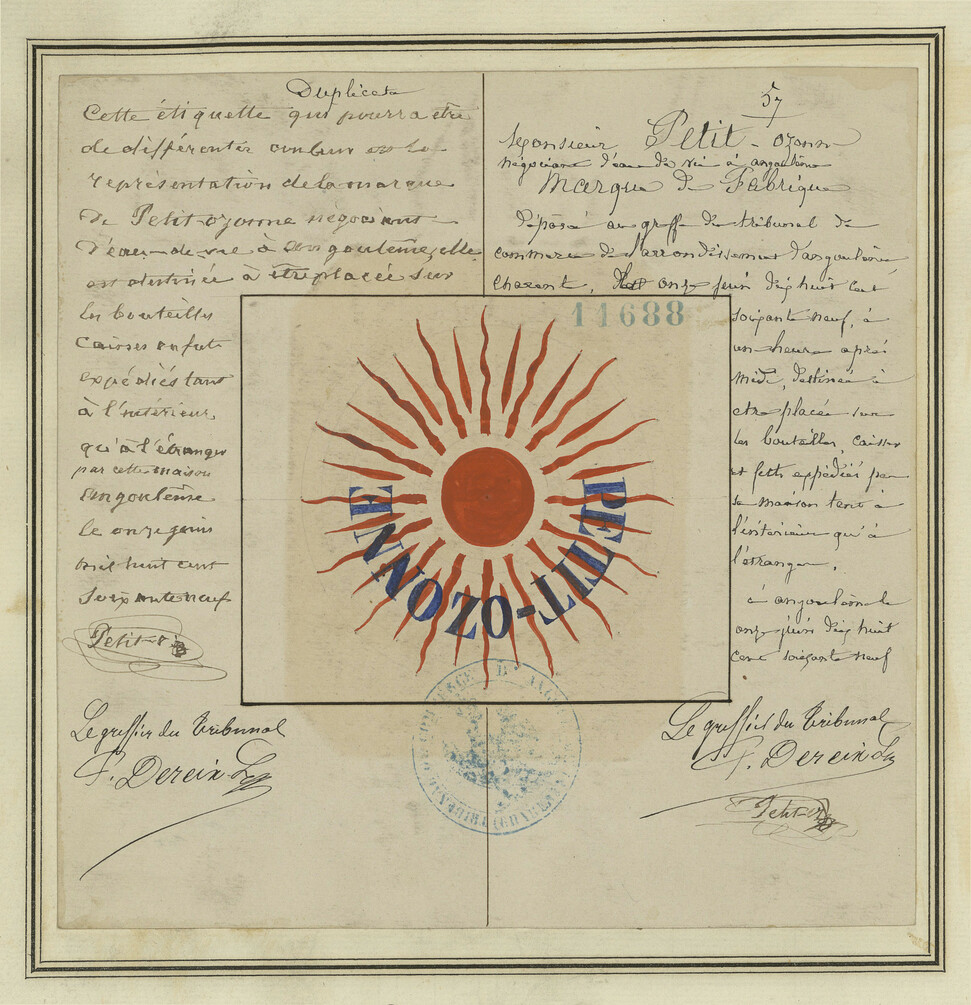 Duplicata
Cette étiquette qui pourra être
de différente couleur est la
représentation de la marque
de Petit-ozonne négociant
d'eau-de-vie à angoulême, elle
est destinée à être placée sur
les bouteilles
caisses ou futs
expédiés tant
à l'intérieur,
qu'à l'étranger
par cette maison
angoulême
le onze juin
mil huit cent
soixante neuf
Petit-o
Le greffier du Tribunal
F. Derein
57
Monsieur Petit-ozonne
négociant d'eau de vie à angoulême
Marque de Fabrique
déposé au greffe du tribunal de
commerce de l'arrondissement d'angoulême
charente, onze juin dix huit cent
soixante neuf, à
une heure après
midi, destinée à
être placée sur
les bouteilles, caisses
et futs expédiés par
sa maison tant à
l'intérieur qu'à
l'étranger,
à angoulême le
onze juin dix huit
cent soixante neuf
Le greffier du Tribunal
F. Derein
Petit-o
11688
PETIT-OZONNE